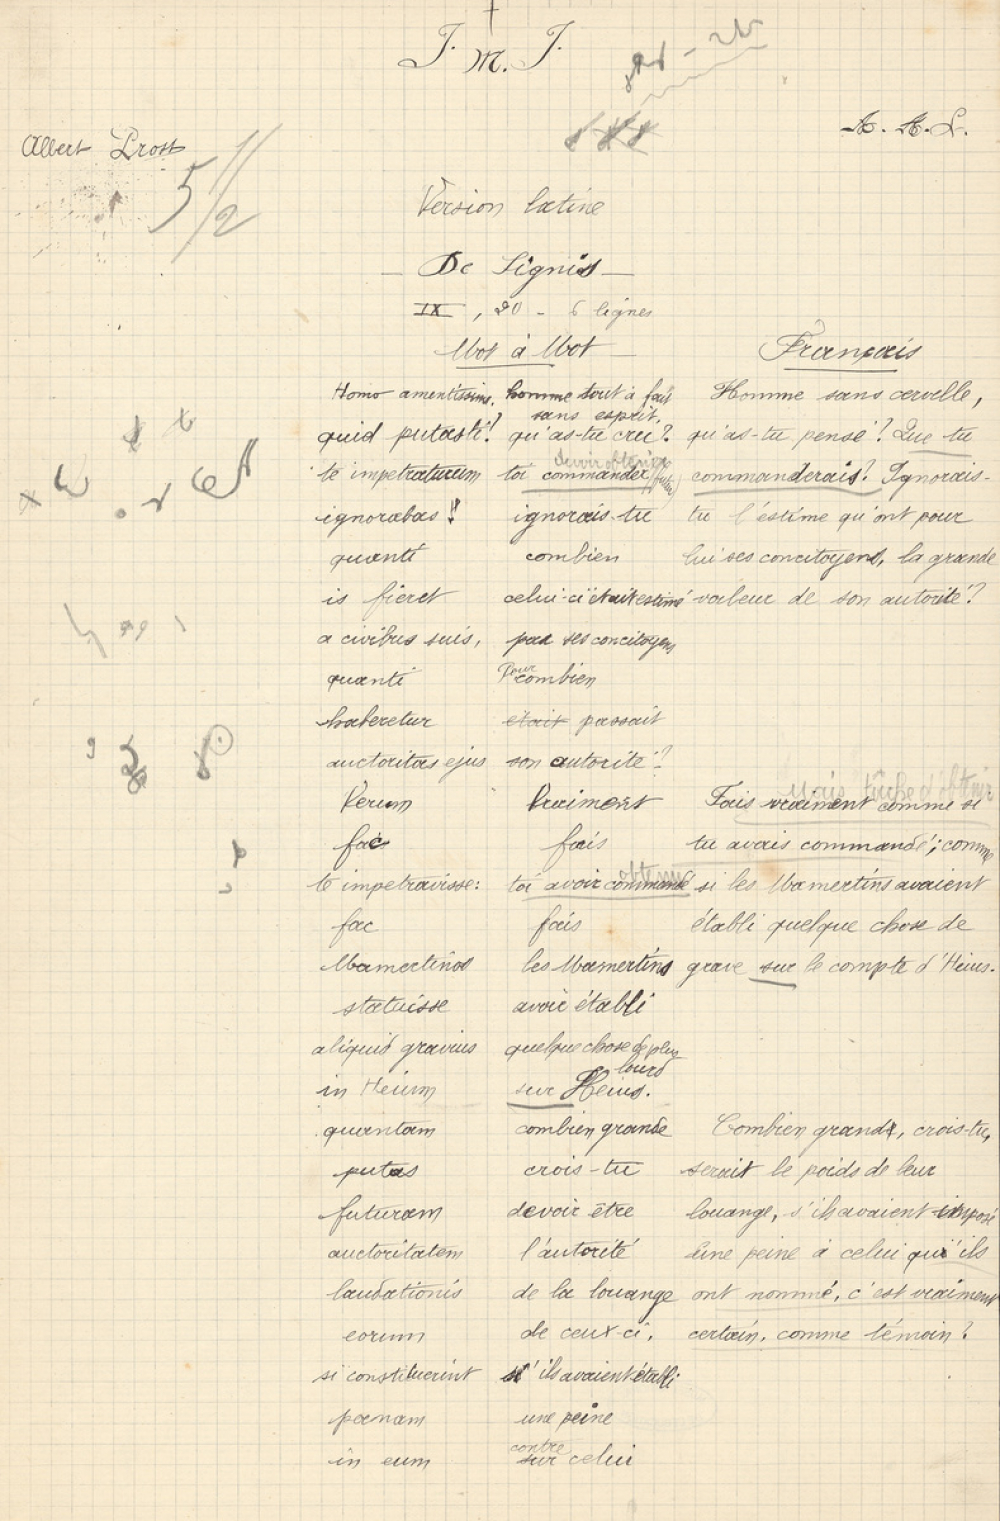 J. M. J.
A. A. L.
Albert Prost
5 1/2
Version latine
De Signis
IX, 20 - 6 lignes
Mot à Mot
Français
Homo amentissime, homme tout à fait sans esprit, Homme sans cervelle,
quid putasti? qu'as-tu cru? qu'as-tu pensé? Que tu
te impetraturum toi commander devoir obtenir (futur) commanderais? Ignorais-
ignorabas ignorais-tu tu l'estime qu'ont pour
quanti combien lui ses concitoyens, la grande
is fieret celui-ci était estimé valeur de son autorité?
a civibus suis, par ses concitoyens
quanti Pour combien
haberetur était passait
auctoritas ejus son autorité?
mais tâche d'obtenir
Verum Vraiment Fais vraiment comme si
fac fais tu avais commandé; comme
te impetravisse: toi avoir commandé obtenu si les Mamertins avaient
fac fais établi quelque chose de
Mamertinos les Mamertins grave sur le compte d'Heius.
statuisse avoir établi
aliquid gravius quelque chose de plus lourd
in Heium sur Heius.
quantam combien grande Combien grand, crois-tu,
putas crois-tu serait le poids de leur
futuram devoir être louange, s'ils avaient imposé
auctoritatem l'autorité une peine à celui qu'ils
laudationis de la louange ont nommé, c'est vraiment
eorum de ceux-ci, certain, comme témoin?
si constituerint s'ils avaient établi
pœnam une peine
in eum contre sur celui